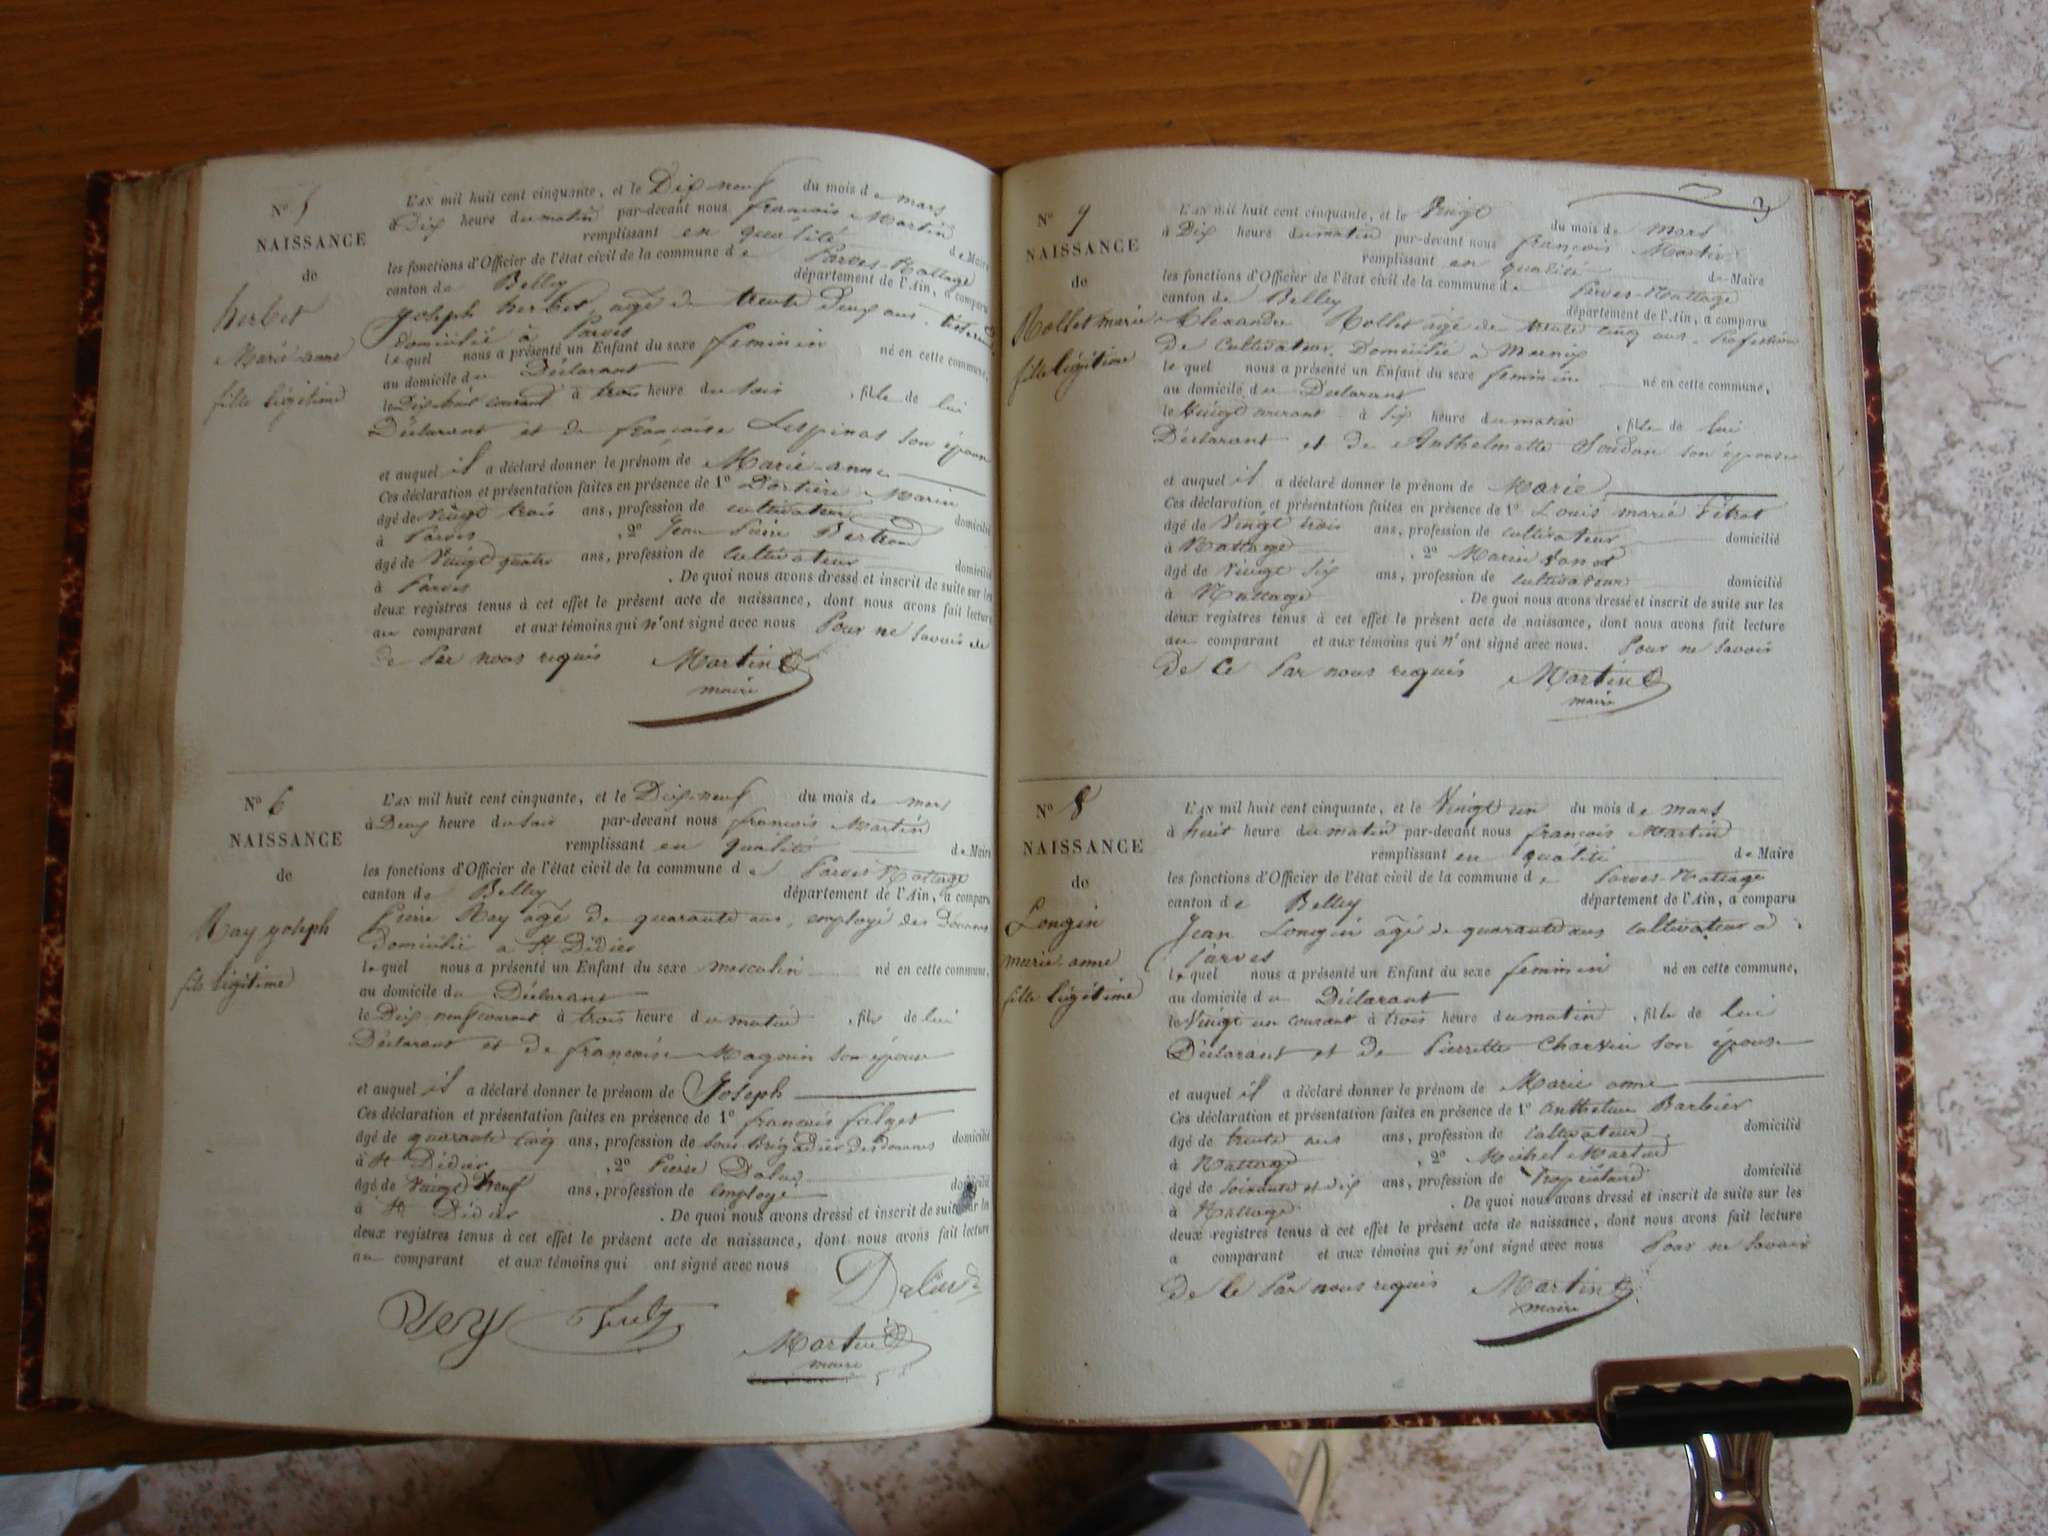 N° 5
NAISSANCE
de
herbet
Marie anne
fille légitime
L'AN mil huit cent cinquante, et le Dix neuf du mois de mars
à Dix heure du matin par-devant nous françois Martin
remplissant en qualité de Maire
les fonctions d'Officier de l'état civil de la commune de Parves-Nattage
canton de Belley département de l'Ain, a comparu
Joseph herbet agé de trente Deux ans
domicilié à Parves
le quel nous a présenté un Enfant du sexe feminin né en cette commune,
au domicile du Déclarant
le Dix huit courant à trois heure du soir, fille de lui
Déclarant et de françoise Lespinas son épouse
et auquel il a déclaré donner le prénom de Marie anne
Ces déclaration et présentation faites en présence de 1° Marin
âgé de Vingt trois ans, profession de cultivateur domicilié
à Parves, 2° Jean Pierre Bertrand
âgé de Vingt quatre ans, profession de cultivateur domicilié
à Parves. De quoi nous avons dressé et inscrit de suite sur les
deux registres tenus à cet effet le présent acte de naissance, dont nous avons fait lecture
au comparant et aux témoins qui n'ont signé avec nous Pour ne savoir de
de Par nous requis Martin
maire
N° 6
NAISSANCE
de
Ray joseph
fils légitime
L'AN mil huit cent cinquante, et le Dix-neuf du mois de mars
à Deux heure du soir par-devant nous françois Martin
remplissant en qualité de Maire
les fonctions d'Officier de l'état civil de la commune de Parves-Nattage
canton de Belley département de l'Ain, a comparu
Pierre Ray âgé de quarante ans, employé des Douanes
domicilié a St Didier
le quel nous a présenté un Enfant du sexe masculin né en cette commune,
au domicile du Déclarant
le Dix neuf courant à trois heure du matin, fils de lui
Déclarant et de françoise Magnin son épouse
et auquel il a déclaré donner le prénom de Joseph
Ces déclaration et présentation faites en présence de 1° françois
âgé de quarante cinq ans, profession de sous Brigadier des douanes domicilié
à St Didier, 2° Pierre
âgé de Vingt neuf ans, profession de employé domicilié
à St Didier. De quoi nous avons dressé et inscrit de suite sur les
deux registres tenus à cet effet le présent acte de naissance, dont nous avons fait lecture
au comparant et aux témoins qui ont signé avec nous
Martin
maire
3
N° 7
NAISSANCE
de
Rollet marie
fille légitime
L'AN mil huit cent cinquante, et le Vingt du mois de mars
à Dix heure du matin par-devant nous françois Martin
remplissant en qualité de Maire
les fonctions d'Officier de l'état civil de la commune de Parves-Nattage
canton de Belley département de l'Ain, a comparu
Alexandre Rollet âgé de trente cinq ans. Profession
De Cultivateur. Domicilié à
le quel nous a présenté un Enfant du sexe feminin né en cette commune,
au domicile du Declarant
le Vingt courant à six heure du matin, fille de lui
Déclarant et de Anthelmette Soudan son épouse
et auquel il a déclaré donner le prénom de Marie
Ces déclaration et présentation faites en présence de 1° Louis marie
âgé de Vingt trois ans, profession de cultivateur domicilié
à Nattage. 2° Marin
âgé de Vingt Six ans, profession de cultivateur domicilié
à Nattage. De quoi nous avons dressé et inscrit de suite sur les
deux registres tenus à cet effet le présent acte de naissance, dont nous avons fait lecture
au comparant et aux témoins qui n'ont signé avec nous. Pour ne savoir
de Ce Par nous requis Martin
maire
N° 8
NAISSANCE
de
Longin
marie anne
fille légitime
L'AN mil huit cent cinquante, et le Vingt un du mois de mars
à huit heure du matin par-devant nous françois Martin
remplissant en qualité de Maire
les fonctions d'Officier de l'état civil de la commune de Parves-Nattage
canton de Belley département de l'Ain, a comparu
Jean Longin âgé de quarante ans cultivateur à
Parves
le quel nous a présenté un Enfant du sexe feminin né en cette commune,
au domicile du Déclarant
le Vingt un courant à trois heure du matin, fille de lui
Déclarant et de Pierrette Charvin son épouse
et auquel il a déclaré donner le prénom de Marie anne
Ces déclaration et présentation faites en présence de 1° Barbier
âgé de trente ans ans, profession de cultivateur domicilié
à Nattage, 2° Michel Martin
âgé de soixante et dix ans, profession de Propriétaire domicilié
à Nattage. De quoi nous avons dressé et inscrit de suite sur les
deux registres tenus à cet effet le présent acte de naissance, dont nous avons fait lecture
a comparant et aux témoins qui n'ont signé avec nous Pour ne savoir
de le Par nous requis Martin
maire